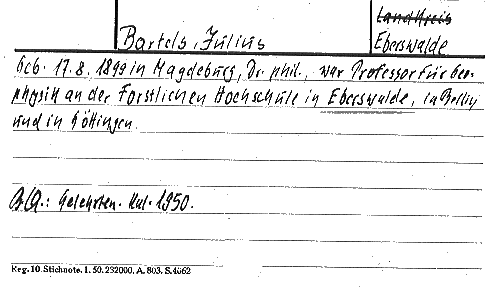 Landkreis
Bartels, Julius
Eberswalde
Geb. 17.8.1899 in Magdeburg, Dr. phil., war Professor für Geo-
physik an der Forstlichen Hochschule in Eberswalde, in Berlin
und in Göttingen.
Qu.: Gelehrten-Kal. 1950.
Reg. 10. Stichnote. 1. 50. 232000. A. 803. S. 4662